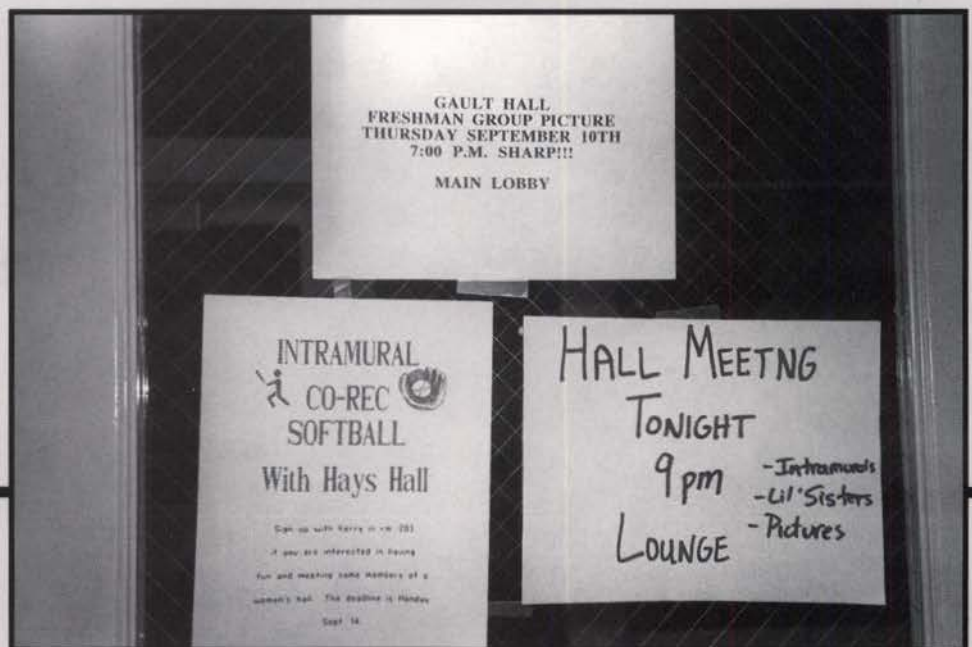 GAULT HALL
FRESHMAN GROUP PICTURE
THURSDAY SEPTEMBER 10TH
7:00 P.M. SHARP!!!
MAIN LOBBY
INTRAMURAL
CO-REC
SOFTBALL
With Hays Hall
Sign up with Kerry in rm 203
if you are interested in having
fun and meeting some members of a
women's hall. The deadline is Monday
Sept 14
HALL MEETNG
TONIGHT
9pm
LOUNGE
- Intramurals
- Lil' Sisters
- Pictures